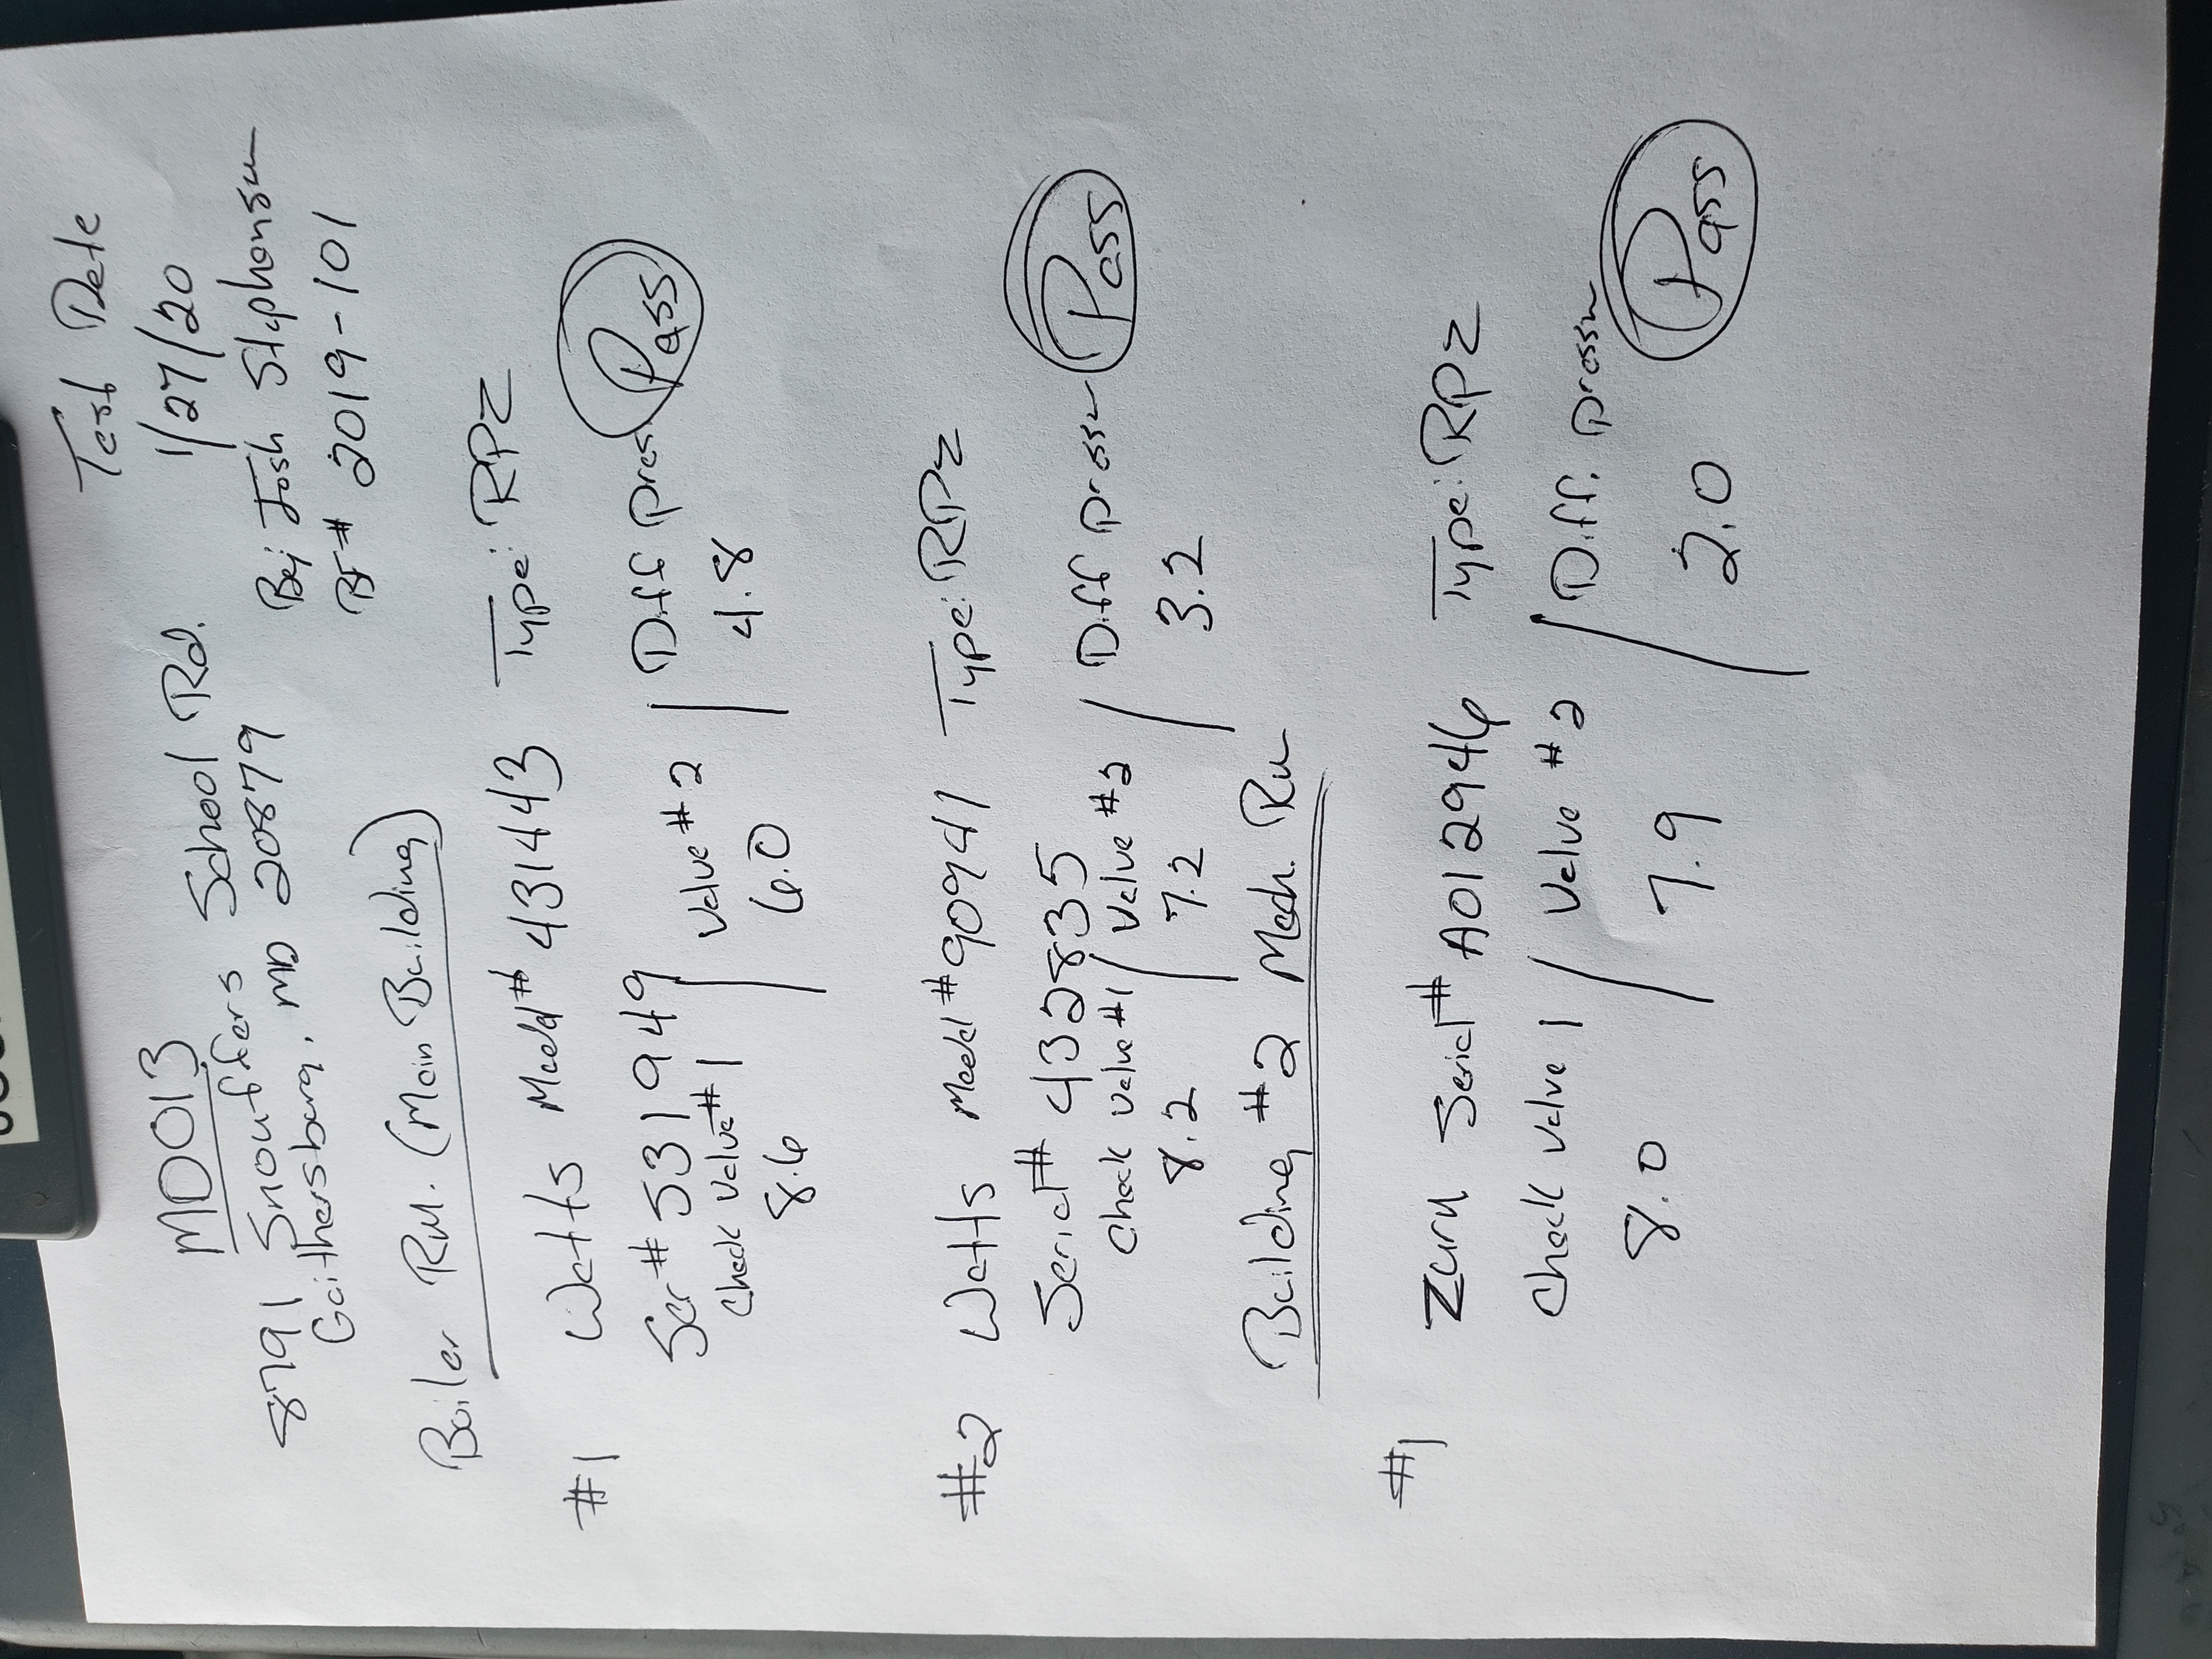 Test Date
1/27/20
MD013
8791 Snouffers School Rd.
Gaithersburg, MD 20879
By: Josh Stephenson
BF# 2019-101
Boiler Rm. (Main Building)
#1 Watts Model# 431443 Type: RPZ
Ser# 531949
Check Valve #1 | Valve #2 | Diff press
8.6 6.0 4.8 Pass
#2 Watts Model #90941 Type: RPZ
Serial# 432835
Check Valve #1 / Valve #2 / Diff press Pass
8.2 7.2 3.2
Building #2 Mech. Rm
#1 Zurn Serial# A012946 Type: RPZ
Check Valve 1 / Valve #2 / Diff. press
8.0 7.9 2.0 Pass